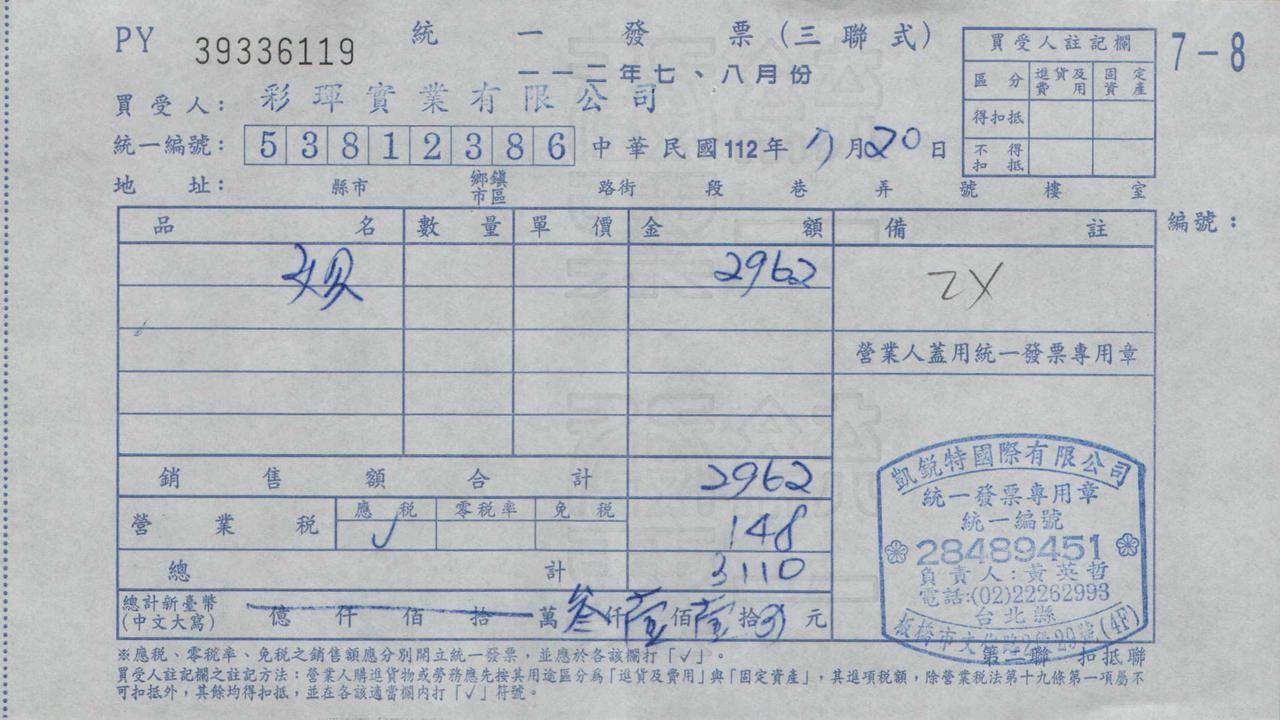 PY 39336119 統一發票(三聯式)
一一二年七、八月份
7-8
買受人: 彩琿實業有限公司
統一編號: 53812386 中華民國112年 7月20日
地址: 縣市 鄉鎮市區 路街 段 巷 弄 號 樓 室
買受人註記欄
區分 進貨及費用 固定資產
得扣抵
不得扣抵
品名 數量 單價 金額 備註 編號:
2962 ZX
營業人蓋用統一發票專用章
銷售額合計 2962
營業稅 應稅 ✓ 零稅率 免稅 148
總計 3110
總計新臺幣(中文大寫) 億 仟 佰 拾 萬 叁仟壹佰壹拾 元
凱銳特國際有限公司
統一發票專用章
統一編號
28489451
負責人:黃英哲
電話:(02)22262993
台北縣
板橋市文化路2段20號(4F)
第二聯 扣抵聯
※應稅、零稅率、免稅之銷售額應分別開立統一發票,並應於各該欄打「✓」。
買受人註記欄之註記方法:營業人購進貨物或勞務應先按其用途區分為「進貨及費用」與「固定資產」,其進項稅額,除營業稅法第十九條第一項屬不
可扣抵外,其餘均得扣抵,並在各該適當欄內打「✓」符號。